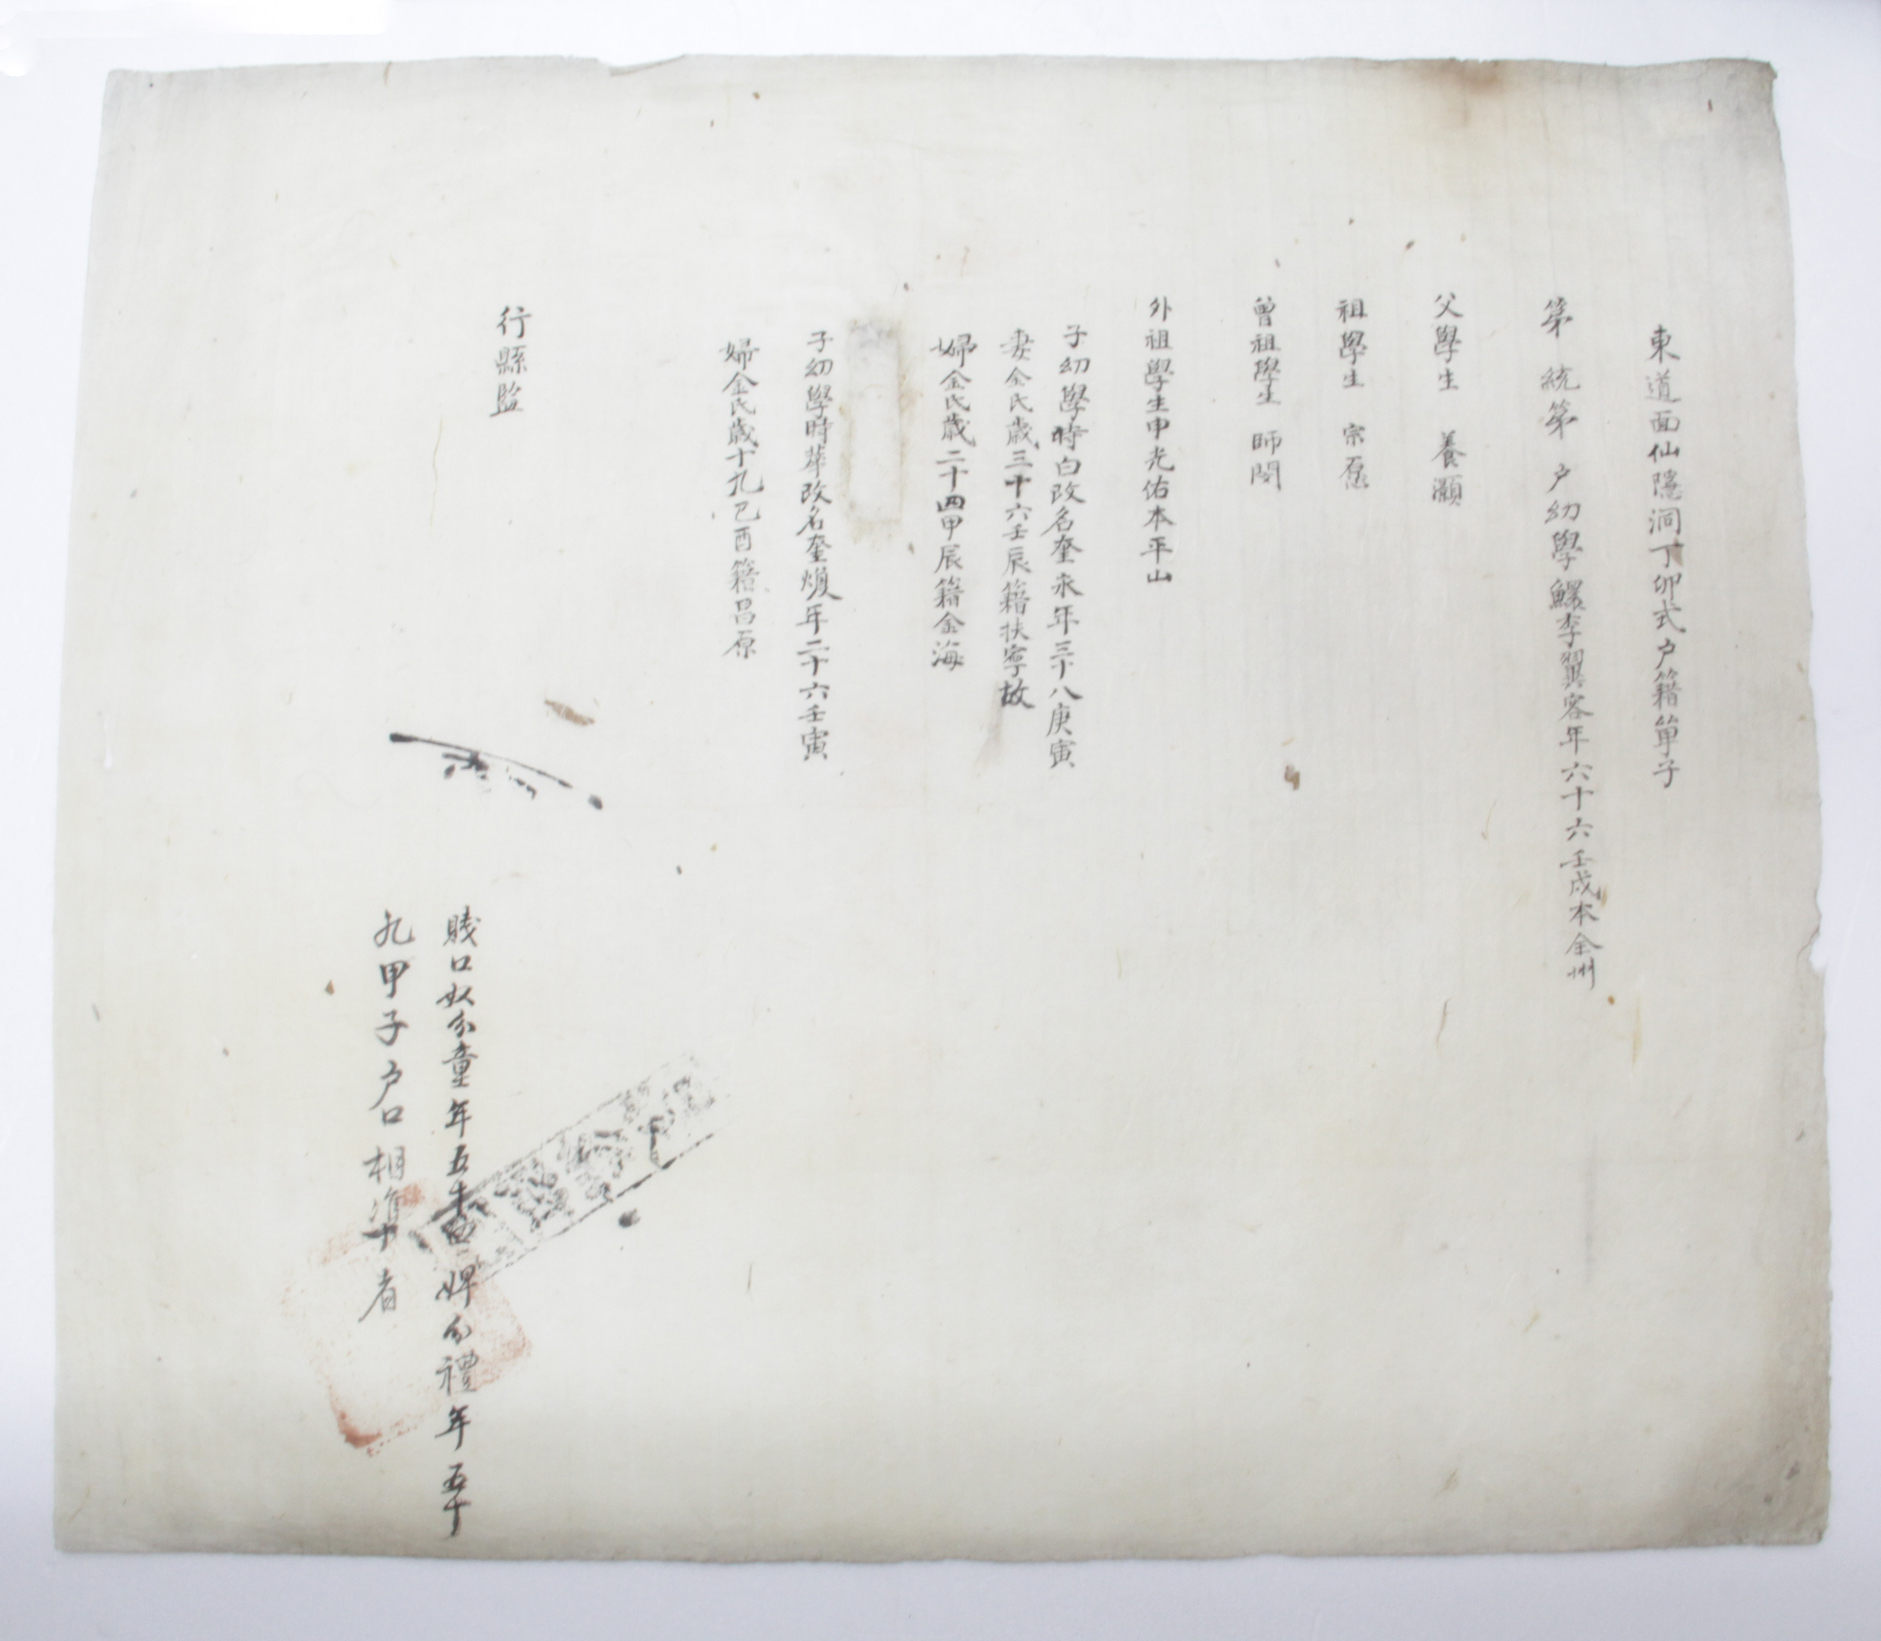 東道面仙隱洞丁卯式户籍單子
第 統第 户幼學鰥李翼容年六十六壬戌本全州
父學生 養灝
祖學生 宗愿
曾祖學生 師閔
外祖學生申光佑本平山
子幼學時白改名奎永年三十八庚寅
妻金氏歲三十六壬辰籍扶寧故
婦金氏歲二十四甲辰籍金海
子幼學時華改名奎煥年二十六壬寅
婦金氏歲十九己酉籍昌原
行縣監
賤口奴分童年五 婢分禮年五十
九甲子户口相準者